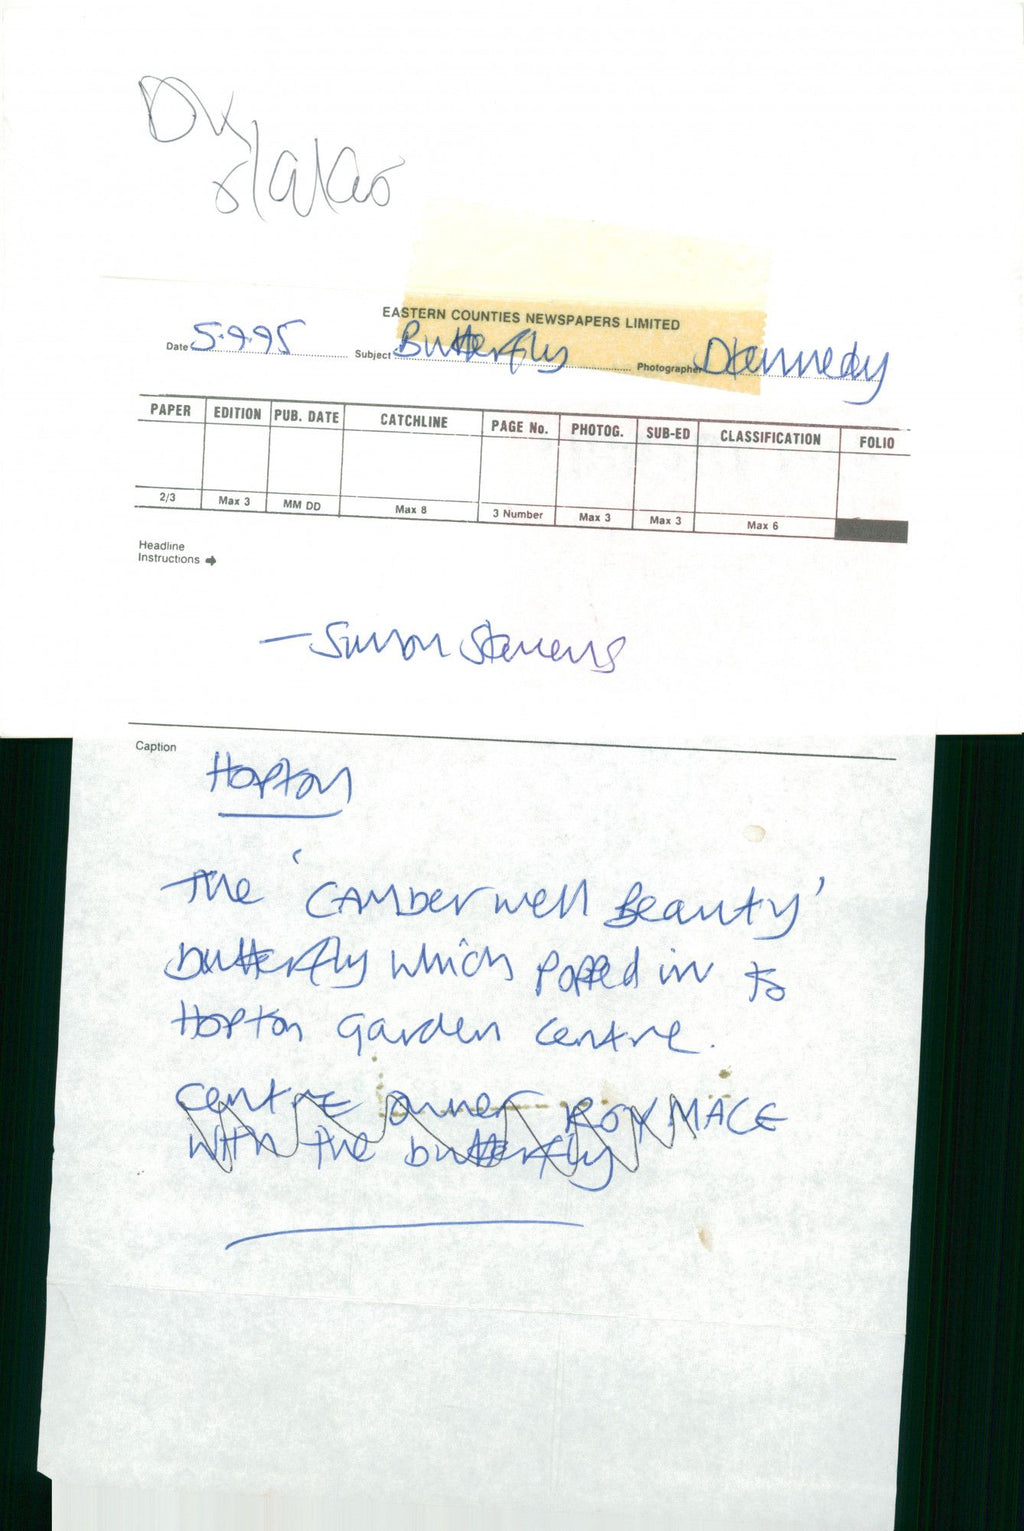 EASTERN COUNTIES NEWSPAPERS LIMITED
Date 5.9.95 Subject Butterfly Photographer DKennedy
PAPER EDITION PUB. DATE CATCHLINE PAGE No. PHOTOG. SUB-ED CLASSIFICATION FOLIO
2/3 Max 3 MM DD Max 8 3 Number Max 3 Max 3 Max 6
Headline
Instructions
— Simon Stevens
Caption
Hopton
The 'CAMberwell Beauty'
butterfly which popped in to
Hopton Garden Centre.
Centre owner ROY MACE
with the butterfly